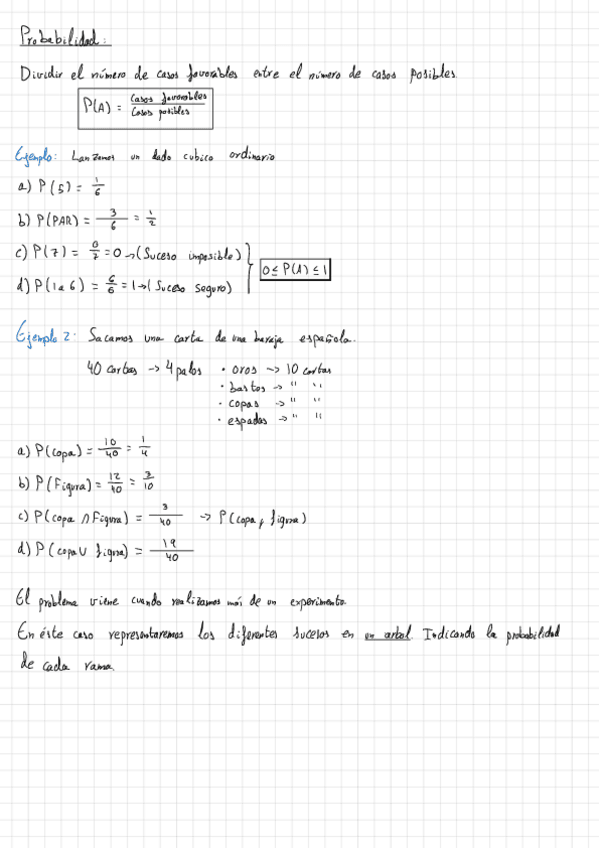 Probabilidad:
Dividir el número de casos favorables entre el número de casos posibles.
P(A) = Casos favorables / Casos posibles
Ejemplo: Lanzamos un dado cubico ordinario
a) P(5) = 1/6
b) P(PAR) = 3/6 = 1/2
c) P(7) = 0/7 = 0 → (Suceso imposible)
d) P(1 a 6) = 6/6 = 1 → (Suceso seguro)
0 ≤ P(A) ≤ 1
Ejemplo 2: Sacamos una carta de una baraja española.
40 cartas → 4 palos · oros → 10 cartas
· bastos → " "
· copas → " "
· espadas → " "
a) P(copa) = 10/40 = 1/4
b) P(Figura) = 12/40 = 3/10
c) P(copa ∩ Figura) = 3/40 → P(copa y figura)
d) P(copa ∪ figura) = 19/40
El problema viene cuando realizamos más de un experimento.
En éste caso representaremos los diferentes sucesos en un arbol. Indicando la probabilidad
de cada rama.